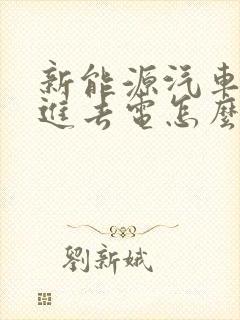 新能源汽車
進去電怎麼
劉新娥